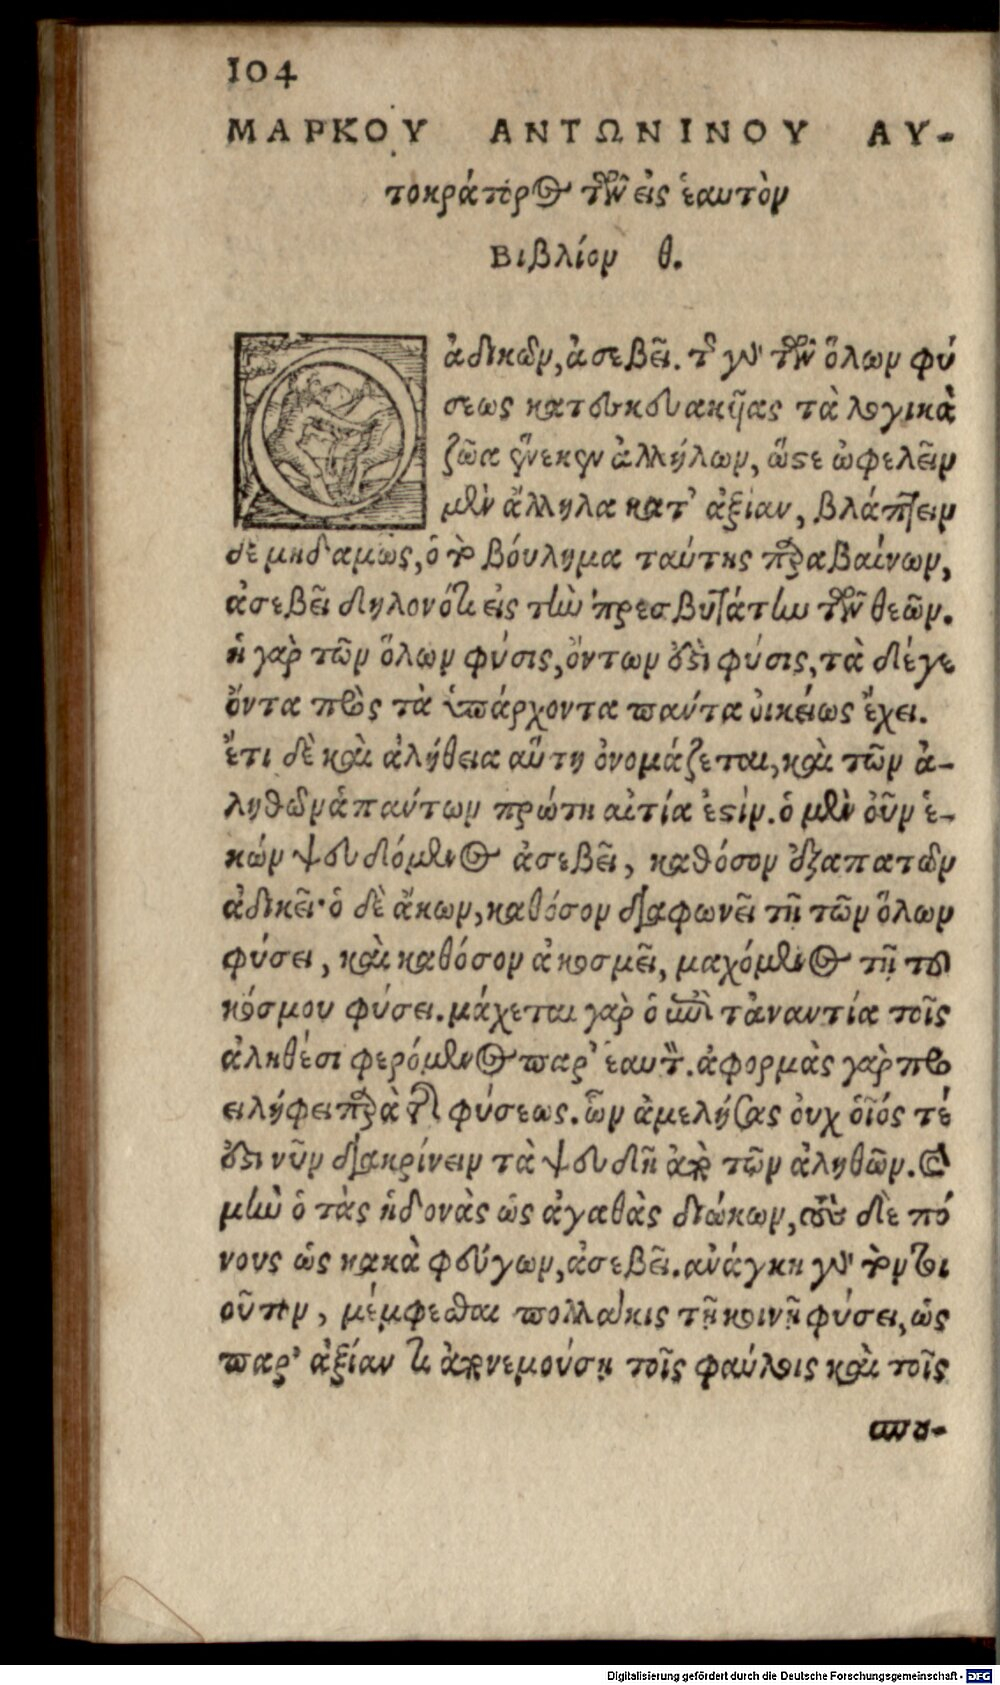 104
ΜΑΡΚΟΥ ΑΝΤΩΝΙΝΟΥ ΑΥ-
τοκράτορος τῶν εἰς ἑαυτὸν
Βιβλίον θ.
Ο ἀδικῶν, ἀσεβεῖ. τῆς γὰρ τῶν ὅλων φύ
σεως κατεσκευακυίας τὰ λογικὰ
ζῶα ἕνεκεν ἀλλήλων, ὥστε ὠφελεῖν
μὲν ἄλληλα κατ' ἀξίαν, βλάπτειν
δὲ μηδαμῶς, ὁ τὸ βούλημα ταύτης παραβαίνων,
ἀσεβεῖ δηλονότι εἰς τὴν πρεσβυτάτην τῶν θεῶν.
ἡ γὰρ τῶν ὅλων φύσις, ὄντων ἐστὶ φύσις, τὰ δέ γε
ὄντα πρὸς τὰ ὑπάρχοντα πάντα οἰκείως ἔχει.
ἔτι δὲ καὶ ἀλήθεια αὕτη ὀνομάζεται, καὶ τῶν ἀ-
ληθῶν ἁπάντων πρώτη αἰτία ἐστίν. ὁ μὲν οὖν ἑ-
κὼν ψευδόμενος ἀσεβεῖ, καθόσον ἐξαπατῶν
ἀδικεῖ· ὁ δὲ ἄκων, καθόσον διαφωνεῖ τῇ τῶν ὅλων
φύσει, καὶ καθόσον ἀκοσμεῖ, μαχόμενος τῇ τοῦ
κόσμου φύσει. μάχεται γὰρ ὁ ἐπὶ τἀναντία τοῖς
ἀληθέσι φερόμενος παρ' ἑαυτόν. ἀφορμὰς γὰρ προ
ειλήφει παρὰ τῆς φύσεως. ὧν ἀμελήσας οὐχ οἷός τέ
ἐστι νῦν διακρίνειν τὰ ψευδῆ ἀπὸ τῶν ἀληθῶν. καὶ
μὴν ὁ τὰς ἡδονὰς ὡς ἀγαθὰς διώκων, τοὺς δὲ πό
νους ὡς κακὰ φεύγων, ἀσεβεῖ. ἀνάγκη γὰρ τὸν τοι
οῦτον, μέμφεσθαι πολλάκις τῇ κοινῇ φύσει, ὡς
παρ' ἀξίαν τι ἀπονεμούσῃ τοῖς φαύλοις καὶ τοῖς
σπου-
Digitalisierung gefördert durch die Deutsche Forschungsgemeinschaft - DFG